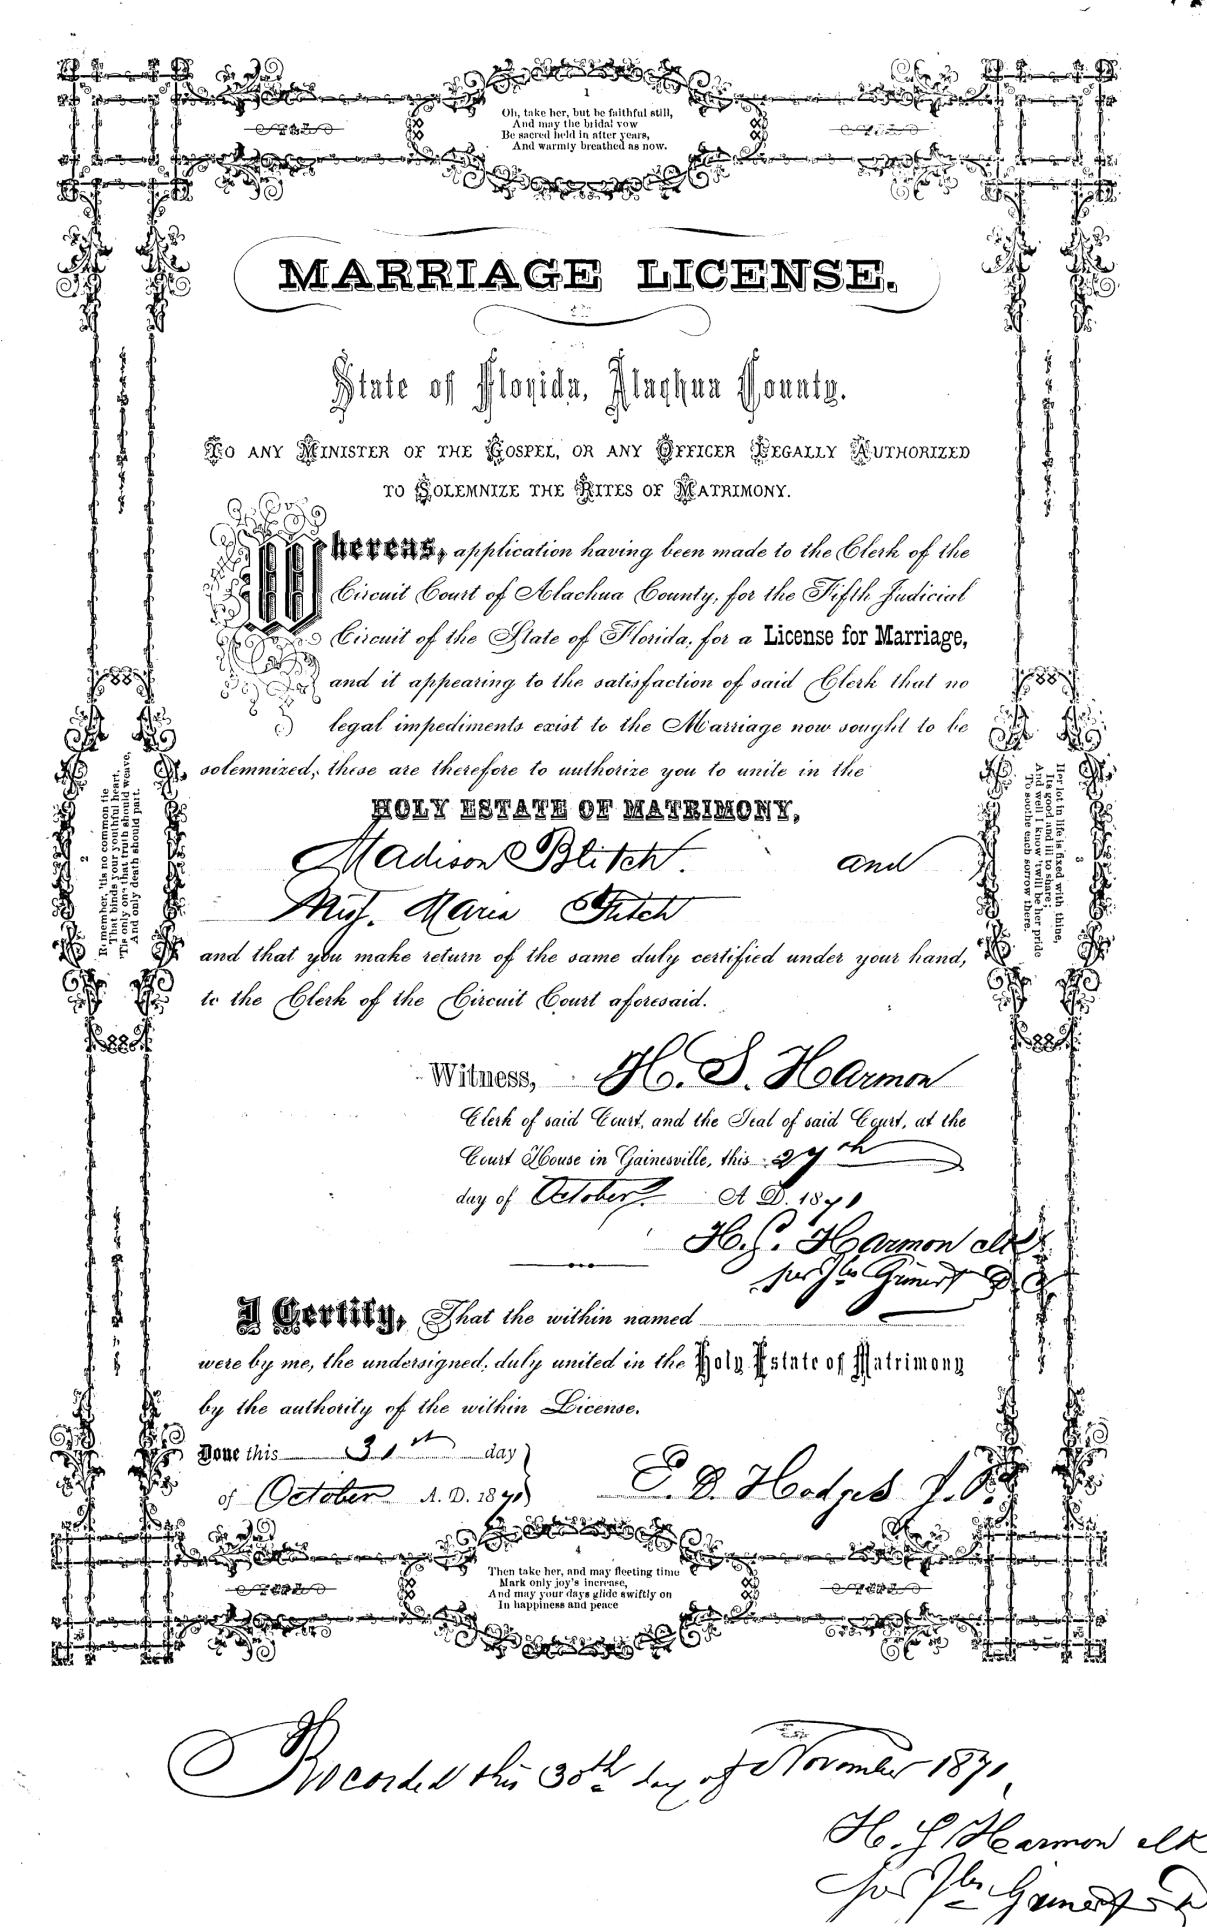 1
Oh, take her, but be faithful still,
And may the bridal vow
Be sacred held in after years,
And warmly breathed as now.
MARRIAGE LICENSE.
State of Florida, Alachua County.
TO ANY MINISTER OF THE GOSPEL, OR ANY OFFICER LEGALLY AUTHORIZED
TO SOLEMNIZE THE RITES OF MATRIMONY.
Whereas, application having been made to the Clerk of the
Circuit Court of Alachua County, for the Fifth Judicial
Circuit of the State of Florida, for a License for Marriage,
and it appearing to the satisfaction of said Clerk that no
legal impediments exist to the Marriage now sought to be
solemnized, these are therefore to authorize you to unite in the
HOLY ESTATE OF MATRIMONY,
Madison Blitch. and
Miss. Maria Fitch
and that you make return of the same duly certified under your hand,
to the Clerk of the Circuit Court aforesaid.
2
Remember, 'tis no common tie
That binds your youthful heart,
'Tis only one that truth should weave,
And only death should part.
3
Her lot in life is fixed with thine,
Its good and ill to share;
And well I know 'twill be her pride
To soothe each sorrow there.
Witness, H. S. Harmon
Clerk of said Court, and the Seal of said Court, at the
Court House in Gainesville, this 27th
day of October A. D. 1871
H. S. Harmon clk
per D. C.
I Certify, That the within named
were by me, the undersigned, duly united in the Holy Estate of Matrimony
by the authority of the within License.
Done this 31st day
of October A. D. 1871
E. D. Hodges J. P.
4
Then take her, and may fleeting time
Mark only joy's increase,
And may your days glide swiftly on
In happiness and peace
Recorded this 30th day of November 1871,
H. S Harmon clk
per